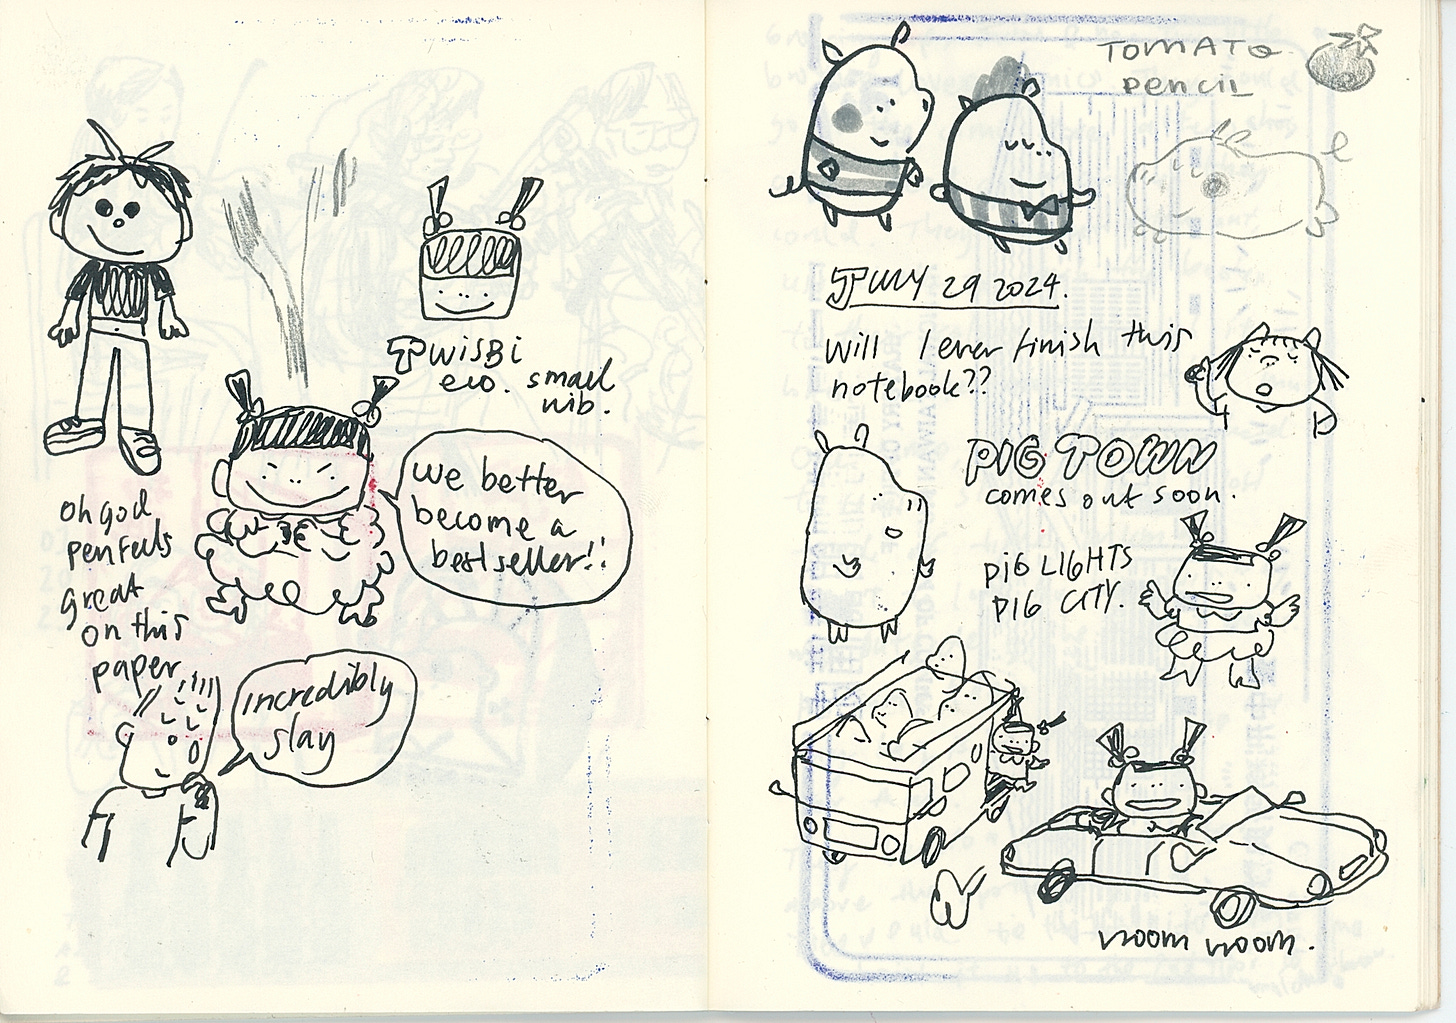 TWISBI
eco. small
nib.
oh god
pen feels
great
on this
paper
we better
become a
bestseller!!
incredibly
slay
TOMATO
pencil
JULY 29 2024.
will I ever finish this
notebook??
PIG TOWN
comes out soon.
PIG LIGHTS
PIG CITY.
vroom vroom.